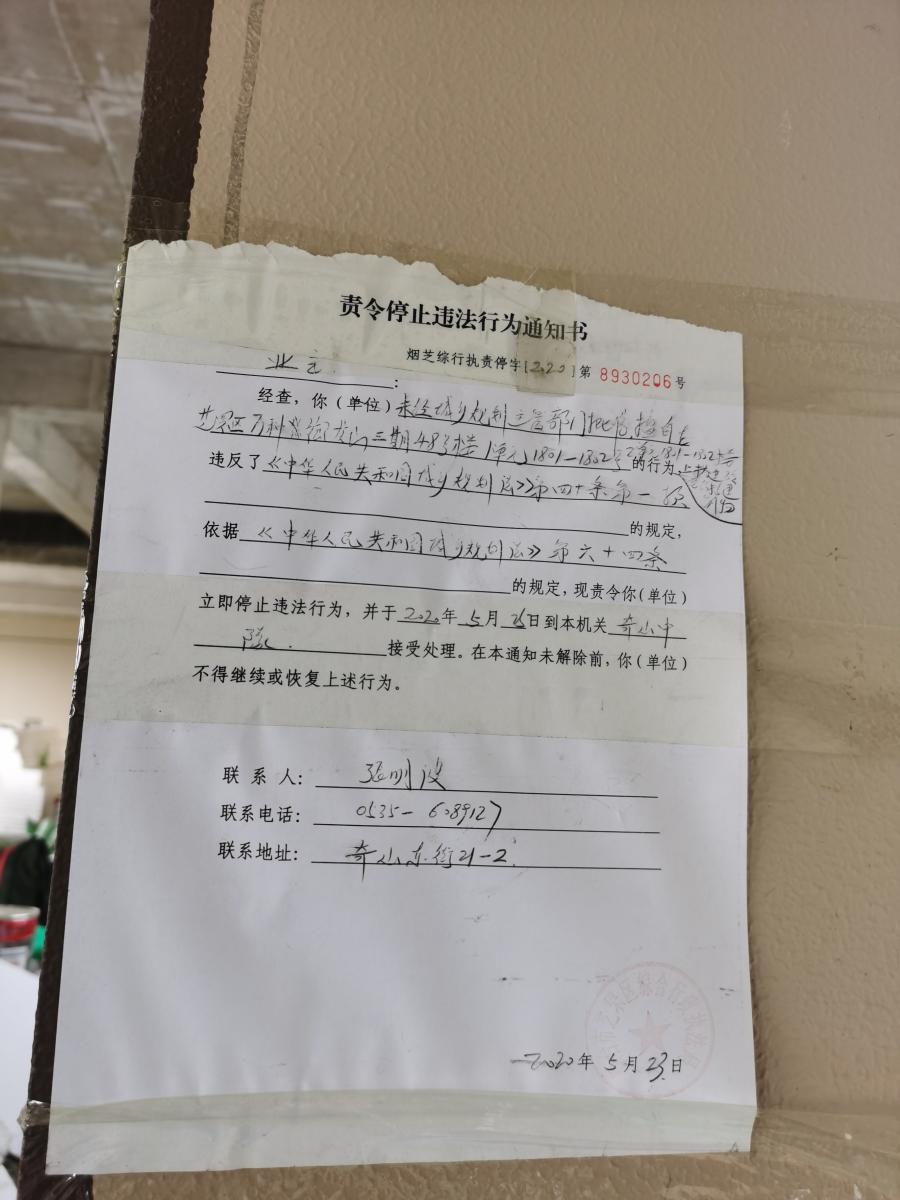 责令停止违法行为通知书
烟芝综行执责停字[2020]第 8930206 号
业主:
经查,你(单位)未经城乡规划主管部门批准擅自在
芝罘区万科 三期48号楼1单元1801-1802号 2单元1801-1802号
的行为,
违反了《中华人民共和国城乡规划法》第四十条第一项
的规定,
依据《中华人民共和国城乡规划法》第六十四条
的规定,现责令你(单位)
立即停止违法行为,并于2020年5月 日到本机关奇山中
队 接受处理。在本通知未解除前,你(单位)
不得继续或恢复上述行为。
联系人:张明波
联系电话:0535-6089127
联系地址:奇山东街21-2
芝罘区综合行政执法
2020年5月23日